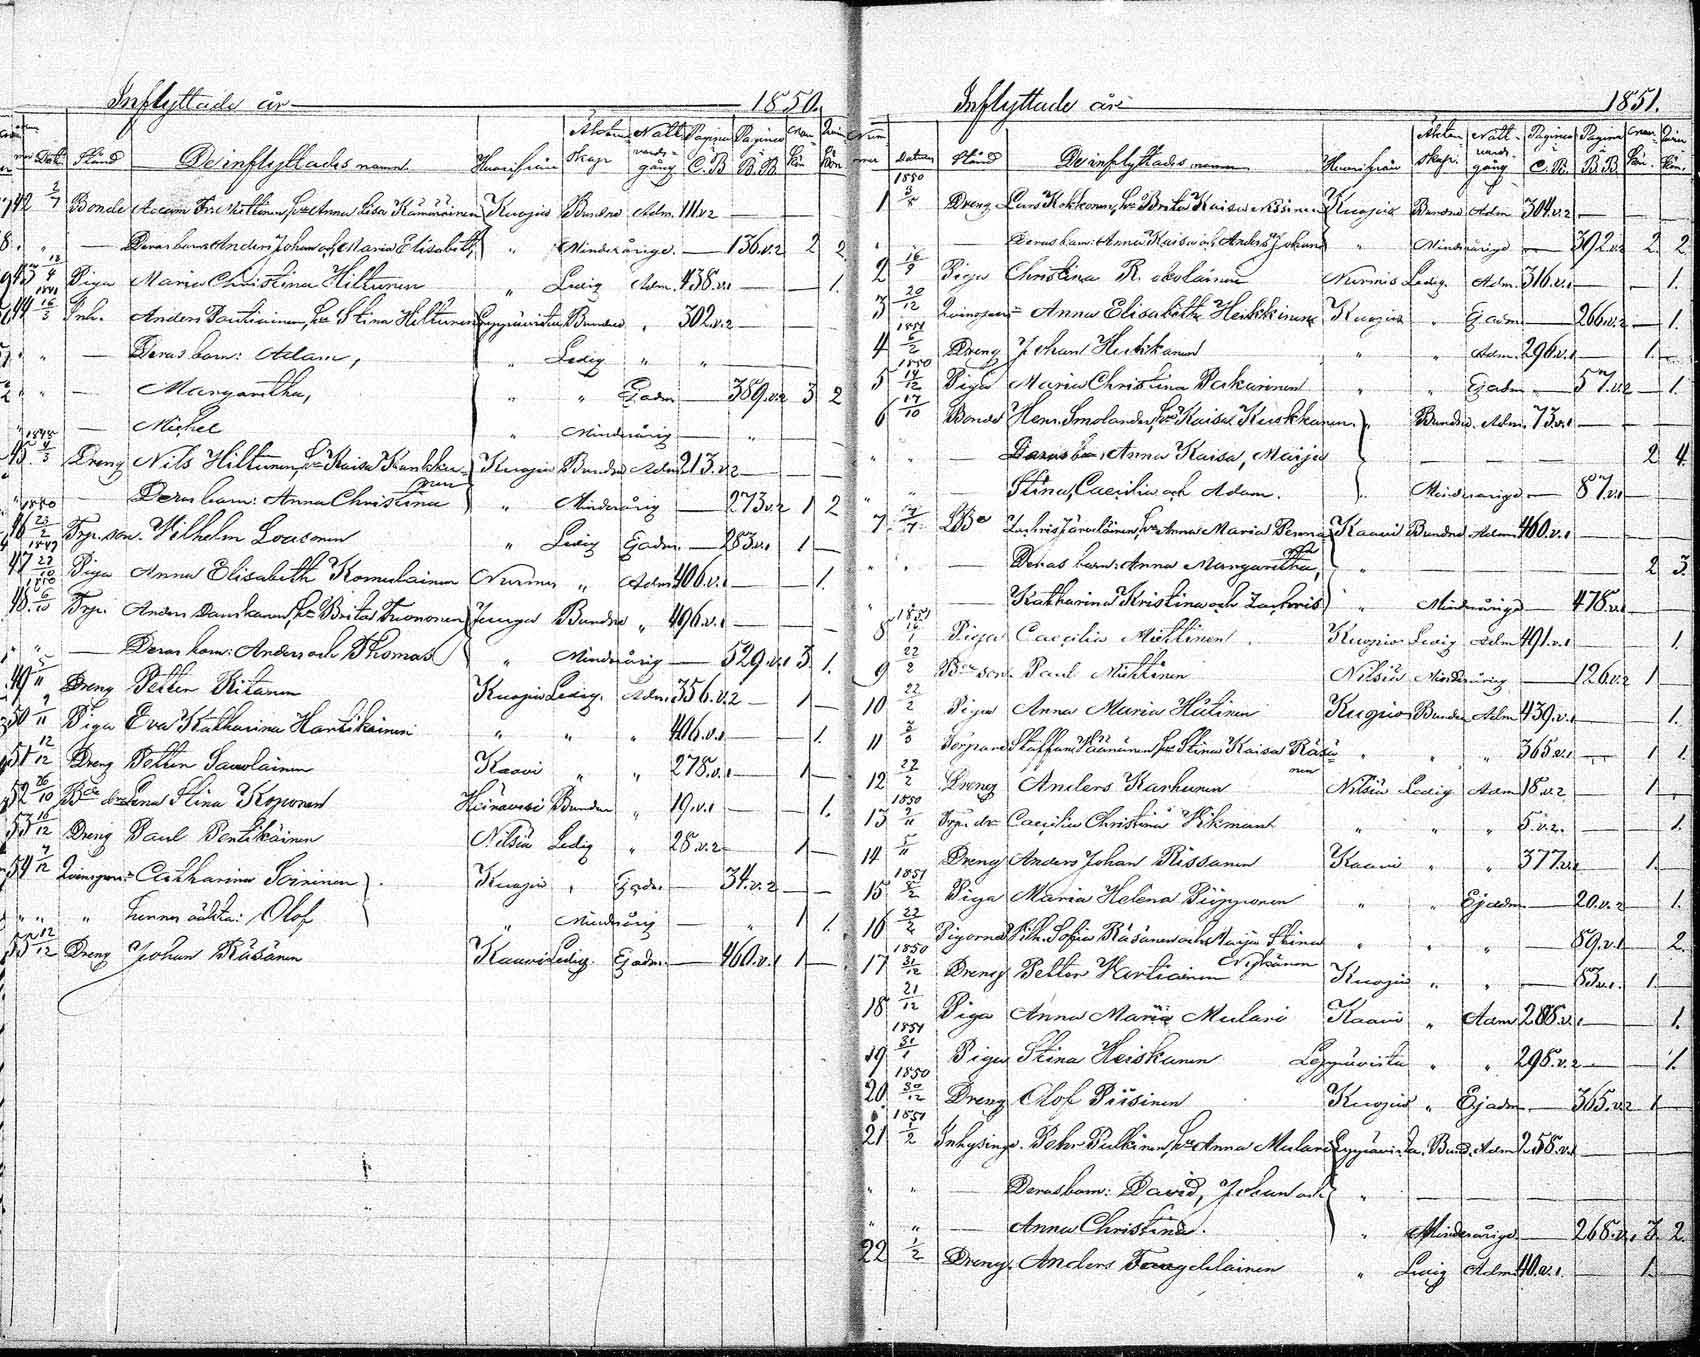 Inflyttade år 1850.
Dat. Stånd De inflyttades namn. Hvarifrån Äktenskap Nattvardsgång Pagina C.B. Pagina B.B. Mankön Qvinkön
42 2/7 Bonde Adam Miettinen, hu Anna Lisa Kämäräinen Kuopio Bundne Adm. 111.v.2 — —
" — Deras barn: Anders Johan och Maria Elisabeth, " Minderårige. — 136.v.2 2 2
43 Piga Maria Christina Hiltunen " Ledig Adm. 438.v.1 — — 1.
1841
44 16/3 Inh. Anders Pautiainen, hu Stina Hiltunen Leppävirta Bundne " 302.v.2 — — —
" — Deras barn: Adam, " Ledig " " —
" — Margaretha, " " Ej adm — 389.v.2 3 2
" — Michel " Minderårig — " —
1848
45 4/3 Dreng Nils Hiltunen, hu Kaisa Kankkunen Kuopio Bundne Adm 213.v.2 —
" — Deras barn: Anna Christina " Minderårig — 273.v.2 1 2
1850
46 23/2 Torp. son. Wilhelm Louesonen " Ledig Ej adm. — 283.v.1 1 —
1849
47 27/10 Piga Anna Elisabeth Komulainen Nurmes " Adm 406.v.1 — — 1.
1850
48 6/10 Torp. Anders Danskanen, hu Brita Tuononen Juuga Bundne " 496.v.1 — — —
" " — Deras barn: Anders och Thomas " Minderårig — 529.v.1 3 1.
49 5/11 Dreng Petter Ritanen Kuopio Ledig. Adm. 356.v.2 — 1 —
50 9/11 Piga Eva Katharina Hartikainen " " " 406.v.1 — — 1.
51 12/12 Dreng Petter Savolainen Kaavi " " 278.v.1 — 1 —
52 26/10 Bde Lena Stina Koponen Bunden " 19.v.1 — — 1.
53 16/12 Dreng Paul Pentikäinen Nilsiä Ledig " 28.v.2 — 1 —
54 7/12 Qvinspers: Catharina Soininen Kuopio " Ej adm — 34.v.2 — —
" " " hennes oäkta: Olof " Minderårig — " 1 1.
55 12/12 Dreng Johan Räsänen Kaavi Ledig. Ej adm. — 460.v.1 1 —
Inflyttade år 1851.
Nummer Datum Stånd De inflyttades namn Hvarifrån Äktenskap. Nattvardsgång Pagina C.B. Pagina B.B. Mankön. Qvinkön.
1850
1 3/5 Dreng Lars Kokkonen, hu Brita Kaisa Miskinen Kuopio Bundne Adm 304.v.2 — — —
" — Deras barn: Anna Kaisa och Anders Johan " Minderårige — 392.v.2 2 2
2 16/9 Piga Christina Nurmis Ledig. Adm. 316.v.1 — — 1.
3 20/12 Qvinspers: Anna Elisabeth Heikkinen Kuopio " Ej adm — 266.v.2 — 1.
1851
4 6/2 Dreng Johan Huskonen " " Adm. 296.v.1 — 1. —
1850
5 14/12 Piga Maria Christina Pakarinen " " Ej adm — 57.v.2 — 1.
6 17/10 Bonde Henr. Smolander, hu Kaisa Kuikkanen. " Bundne. Adm. 73.v.1 — — —
" " — Deras barn, Anna Kaisa, Maija — — — — 2 4.
" " — Stina, Caecilia och Adam. " Minderårige — 87.v.1 — —
7 Zachris Järveläinen, hu Anna Maria Kaavi Bundne Adm 460.v.1 — — —
" " — Deras barn: Anna Margaretha, " — — — 2 3.
" — Katharina Kristina och Zachris " Minderårige — 478.v.1 — —
1851
8 Piga Caecilia Miettinen Kuopio Ledig Adm 491.v.1 — — 1.
9 22/2 Bde son. Paul Miettinen Nilsiä Minderårig — 126.v.2 1 —
10 22/2 Piga Anna Maria Hiltinen Kuopio Bunden Adm 439.v.1 — — 1.
11 Torpare Staffan Väänänen, hu Stina Kaisa Räsänen " " " 365.v.1 — 1 1.
12 22/2 Dreng Anders Karhunen Nilsiä Ledig Adm 18.v.2 — 1 —
1850
13 9/11 Torp: dr Caecilia Christina Wikman " " " 5.v.2. — — 1.
14 5/11 Dreng Anders Johan Rissanen Kaavi " " 377.v.1 — 1. —
1851
15 8/2 Piga Maria Helena Piipponen " " Ej adm — 20.v.2 — 1.
16 22/2 Pigorna Wilh. Sofia Räsänen och Maija Stina Nykänen " " " — 89.v.1 — 2.
1850
17 31/12 Dreng Petter Hartiainen Kuopio " " — 83.v.1. 1. —
18 21/12 Piga Anna Maria Mulari Kaavi " Adm 288.v.1 — — 1.
1851
19 31/1 Piga Stina Heiskanen Leppävirta " " 298.v.2 — — 1.
1850
20 30/12 Dreng Olof Piisinen Kuopio " Ej adm. — 365.v.2 1 —
1851
21 1/2 Inhysing. Pehr Pulkinen, hu Anna Mulari Leppävirta. Bund. Adm 258.v.1 — — —
" " — Deras barn: David, Johan och " — — — — —
" " — Anna Christina. " Minderårige — 268.v.1 3. 2.
22 1/2 Dreng. Anders " Ledig Adm 40.v.1. — 1. —